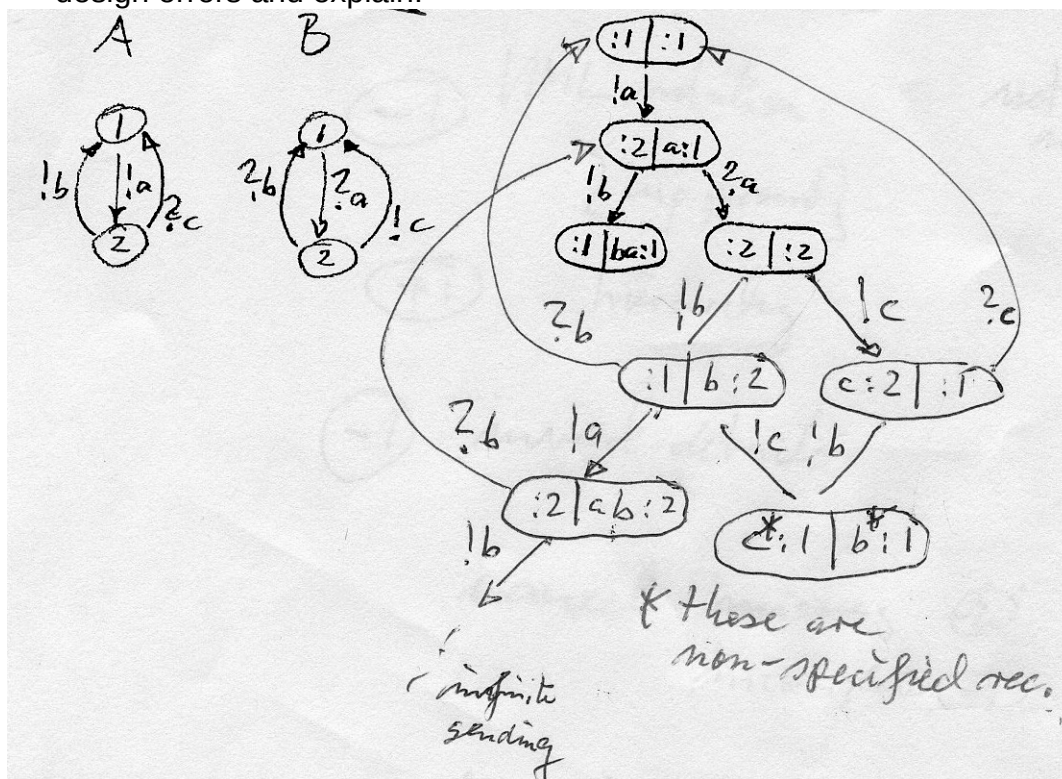 design errors and explain.
A B
:1 | :1
!a
1
:2 | a:1
!b !a ?c
?b ?a !c
!b ?a
2
2
:1 | ba:1
:2 | :2
!b !c ?c
?b
:1 | b:2
c:2 | :1
?b !a !c !b
:2 | ab:2
!b
c*:1 | b*:1
* these are
non-specified rec.
infinite
sending